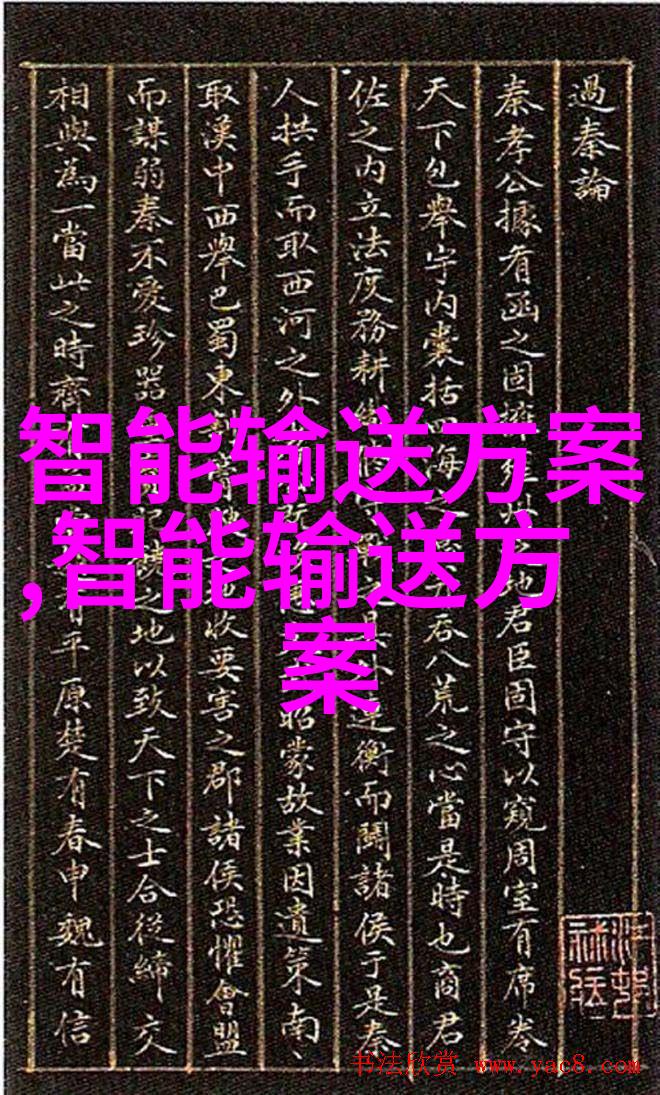 過秦論
秦孝公據有函之固擁之地君臣固守以窺周室有席卷
天下包舉宇内囊括四海之吞八荒之心當是時也商君
佐之内立法度務耕織具連衡而鬪諸侯于是秦
人拱手而取西河之外昭蒙故業因遺策南
取漢中西舉巴蜀東割地收要害之郡諸侯恐懼會盟
而謀弱秦不愛珍器之地以致天下之士合從締交
相與為一當此之時齊有平原楚有春申魏有信
智能输送方案
,智能输送方
案
书法欣赏 www.yac8.com